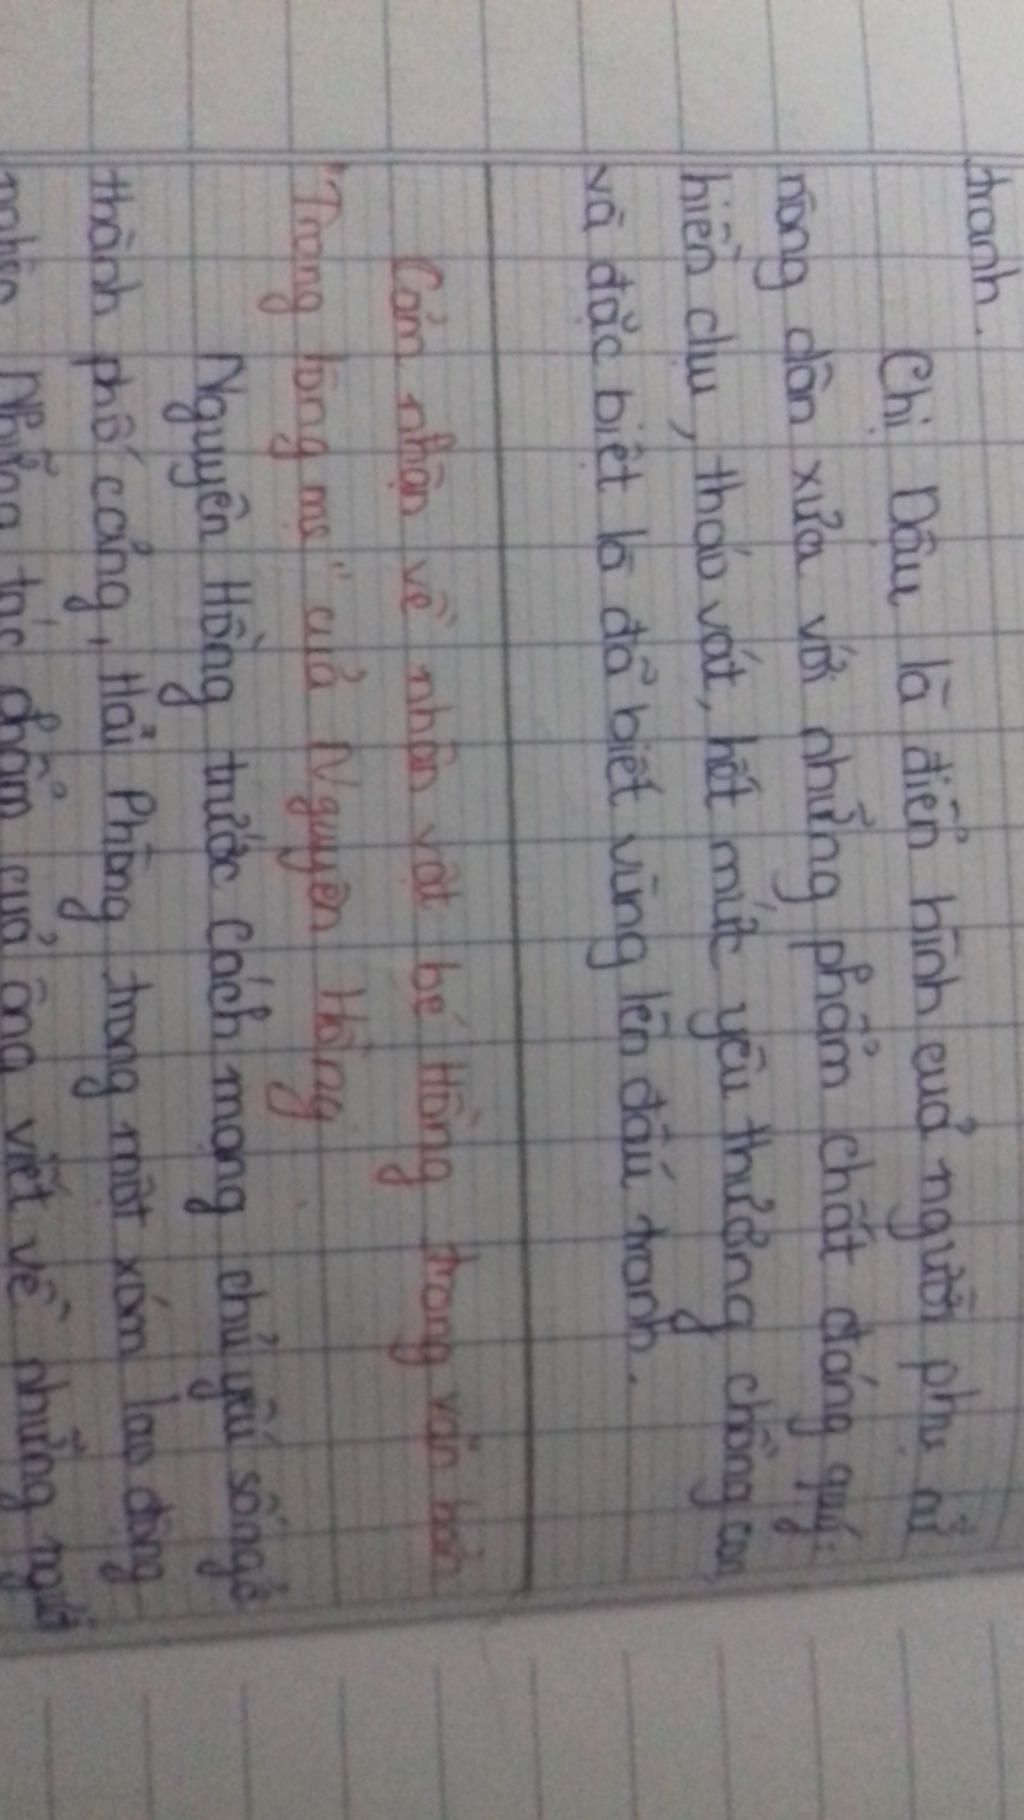 tranh.
Chị Dậu là điển hình của người phụ nữ
nông dân xưa với những phẩm chất đáng quý:
hiền dịu, tháo vát, hết mức yêu thương chồng con
và đặc biệt là đã biết vùng lên đấu tranh.
Cảm nhận về nhân vật bé Hồng trong văn bản
"Trong lòng mẹ" của Nguyên Hồng
Nguyên Hồng trước Cách mạng chủ yếu sống ở
thành phố cảng, Hải Phòng trong một xóm lao động
nghèo. Những tác phẩm của ông viết về những người